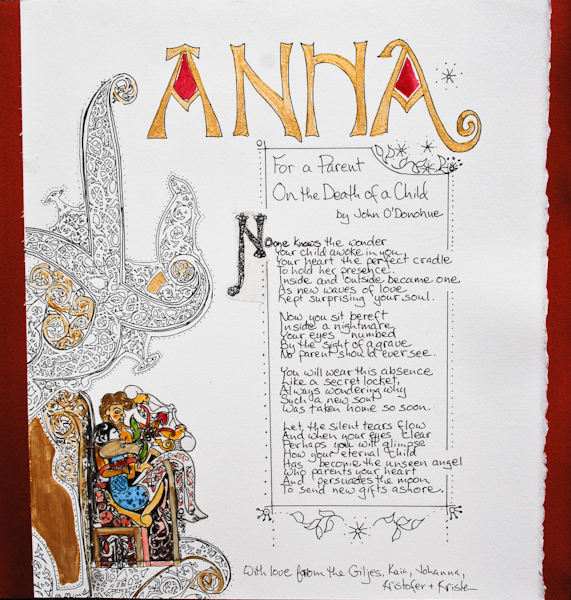 ANNA
For a Parent
On the Death of a Child
by John O'Donohue
No one knows the wonder
Your child awoke in you,
Your heart the perfect cradle
To hold her presence.
Inside and outside became one
As new waves of love
Kept surprising your soul.
Now you sit bereft
Inside a nightmare,
Your eyes numbed
By the sight of a grave
No parent should ever see.
You will wear this absence
Like a secret locket,
Always wondering why
Such a new soul
Was taken home so soon.
Let the silent tears flow
And when your eyes clear
Perhaps you will glimpse
How your eternal child
Has become the unseen angel
Who parents your heart
And persuades the moon
To send new gifts ashore.
With love from the Giljes, Kaia, Johanna,
Kristofer + Kriste